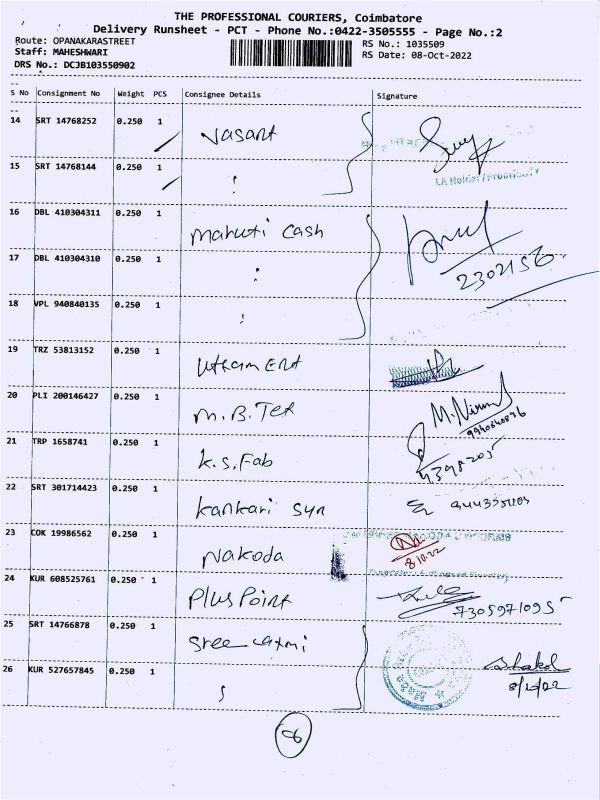 THE PROFESSIONAL COURIERS, Coimbatore
Delivery Runsheet - PCT - Phone No.:0422-3505555 - Page No.:2
Route: OPANAKARASTREET
RS No.: 1035509
Staff: MAHESHWARI
RS Date: 08-Oct-2022
DRS No.: DCJB103550902
S No Consignment No Weight PCS Consignee Details Signature
14 SRT 14768252 0.250 1 Vasant
15 SRT 14768144 0.250 1
16 DBL 410304311 0.250 1 Maruti Cash
17 DBL 410304310 0.250 1 2302156
18 VPL 940840135 0.250 1
19 TRZ 53813152 0.250 1 Uttam Ent
20 PLI 200146427 0.250 1 M.B.Tex M.Nirmal
21 TRP 1658741 0.250 1 K.S.Fab
22 SRT 301714423 0.250 1 Kankari Syn
23 COK 19986562 0.250 1 Nakoda 8.10.22
24 KUR 608525761 0.250 1 Plus Point 7305971095
25 SRT 14766878 0.250 1 Sree Laxmi
26 KUR 527657845 0.250 1 8/10/22